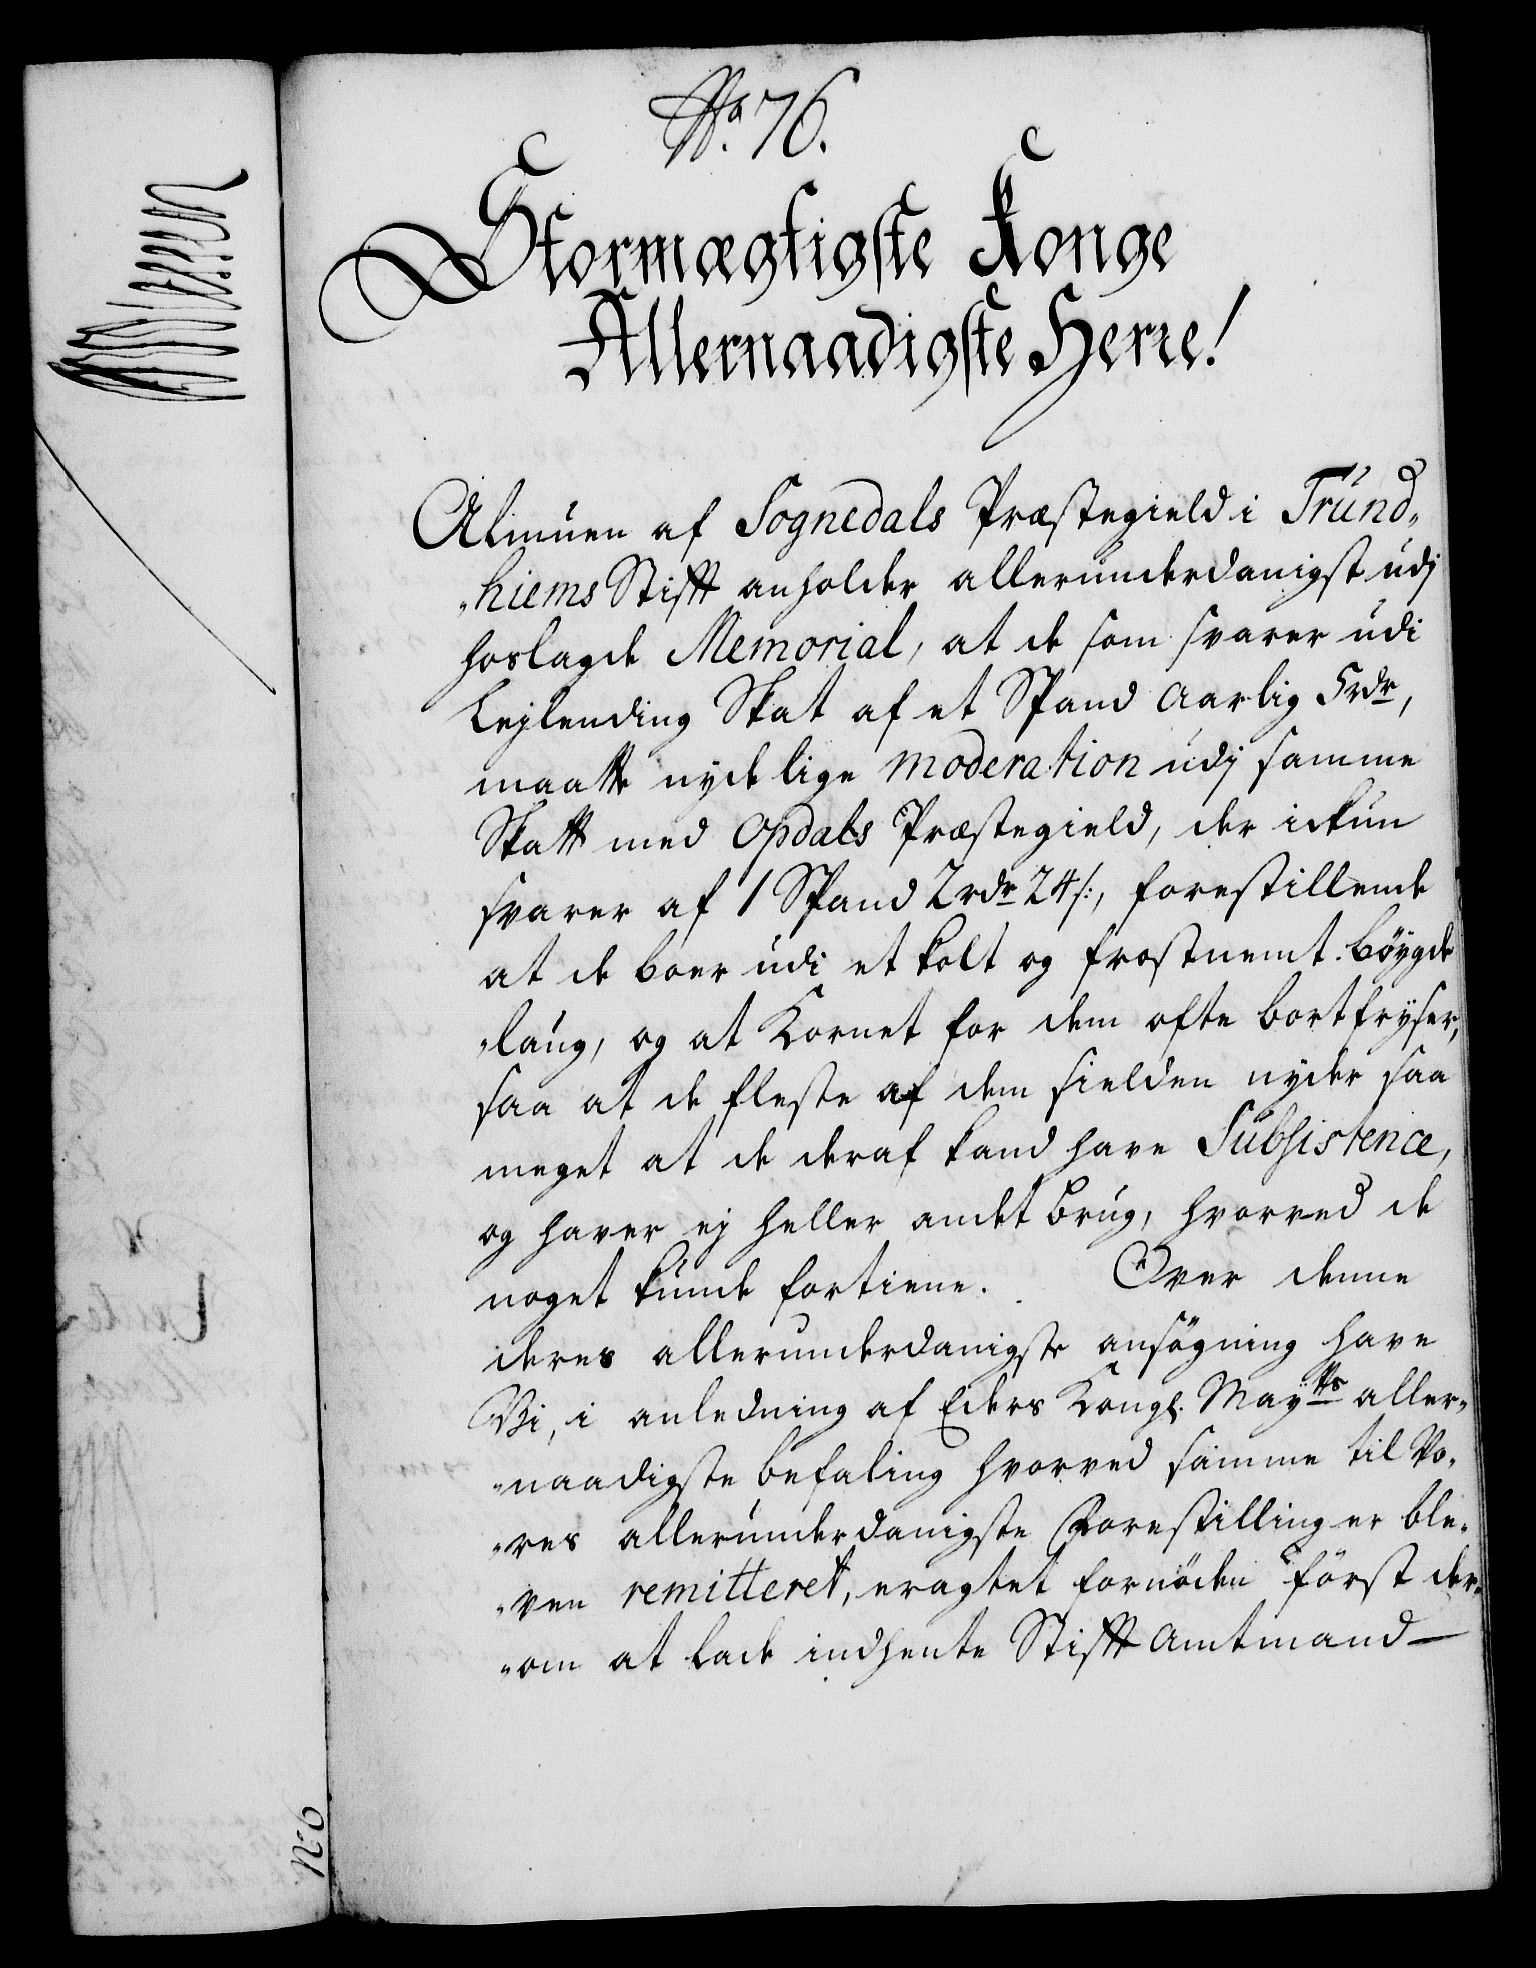 No. 76.
Stormægtigste Konge
Allernaadigste Herre!
Almuen af Sognedals Præstegield i Trund„
„hiems Stifft anholder allerunderdanigst udj
hoslagde Memorial, at de som svarer udi
Lejlending Skat af et Spand aarlig 5rdr,
maatte nyde lige moderation udj samme
Skatt med Opdals Præstegield, der ickun
svarer af 1 Spand 2rdr 24 s:, forestillende
at de boer udi et kolt og frostnemt bøygde
„laug, og at Kornet for dem ofte bortfryser,
saa at de fleste af dem sielden nyder saa
meget at de deraf kand have Subsistence,
og haver ej heller andet brug, hvorved de
noget kunde fortiene. Over denne
deres allerunderdanigste ansøgning have
Vi, i anledning af Eders Kongl. Mayts aller„
„naadigste befaling hvorved samme til Vo„
„res allerunderdanigste Forestilling er ble„
„ven remitteret, eragtet fornøden først der„
„om at lade indhente Stifft Amtmand
No 6